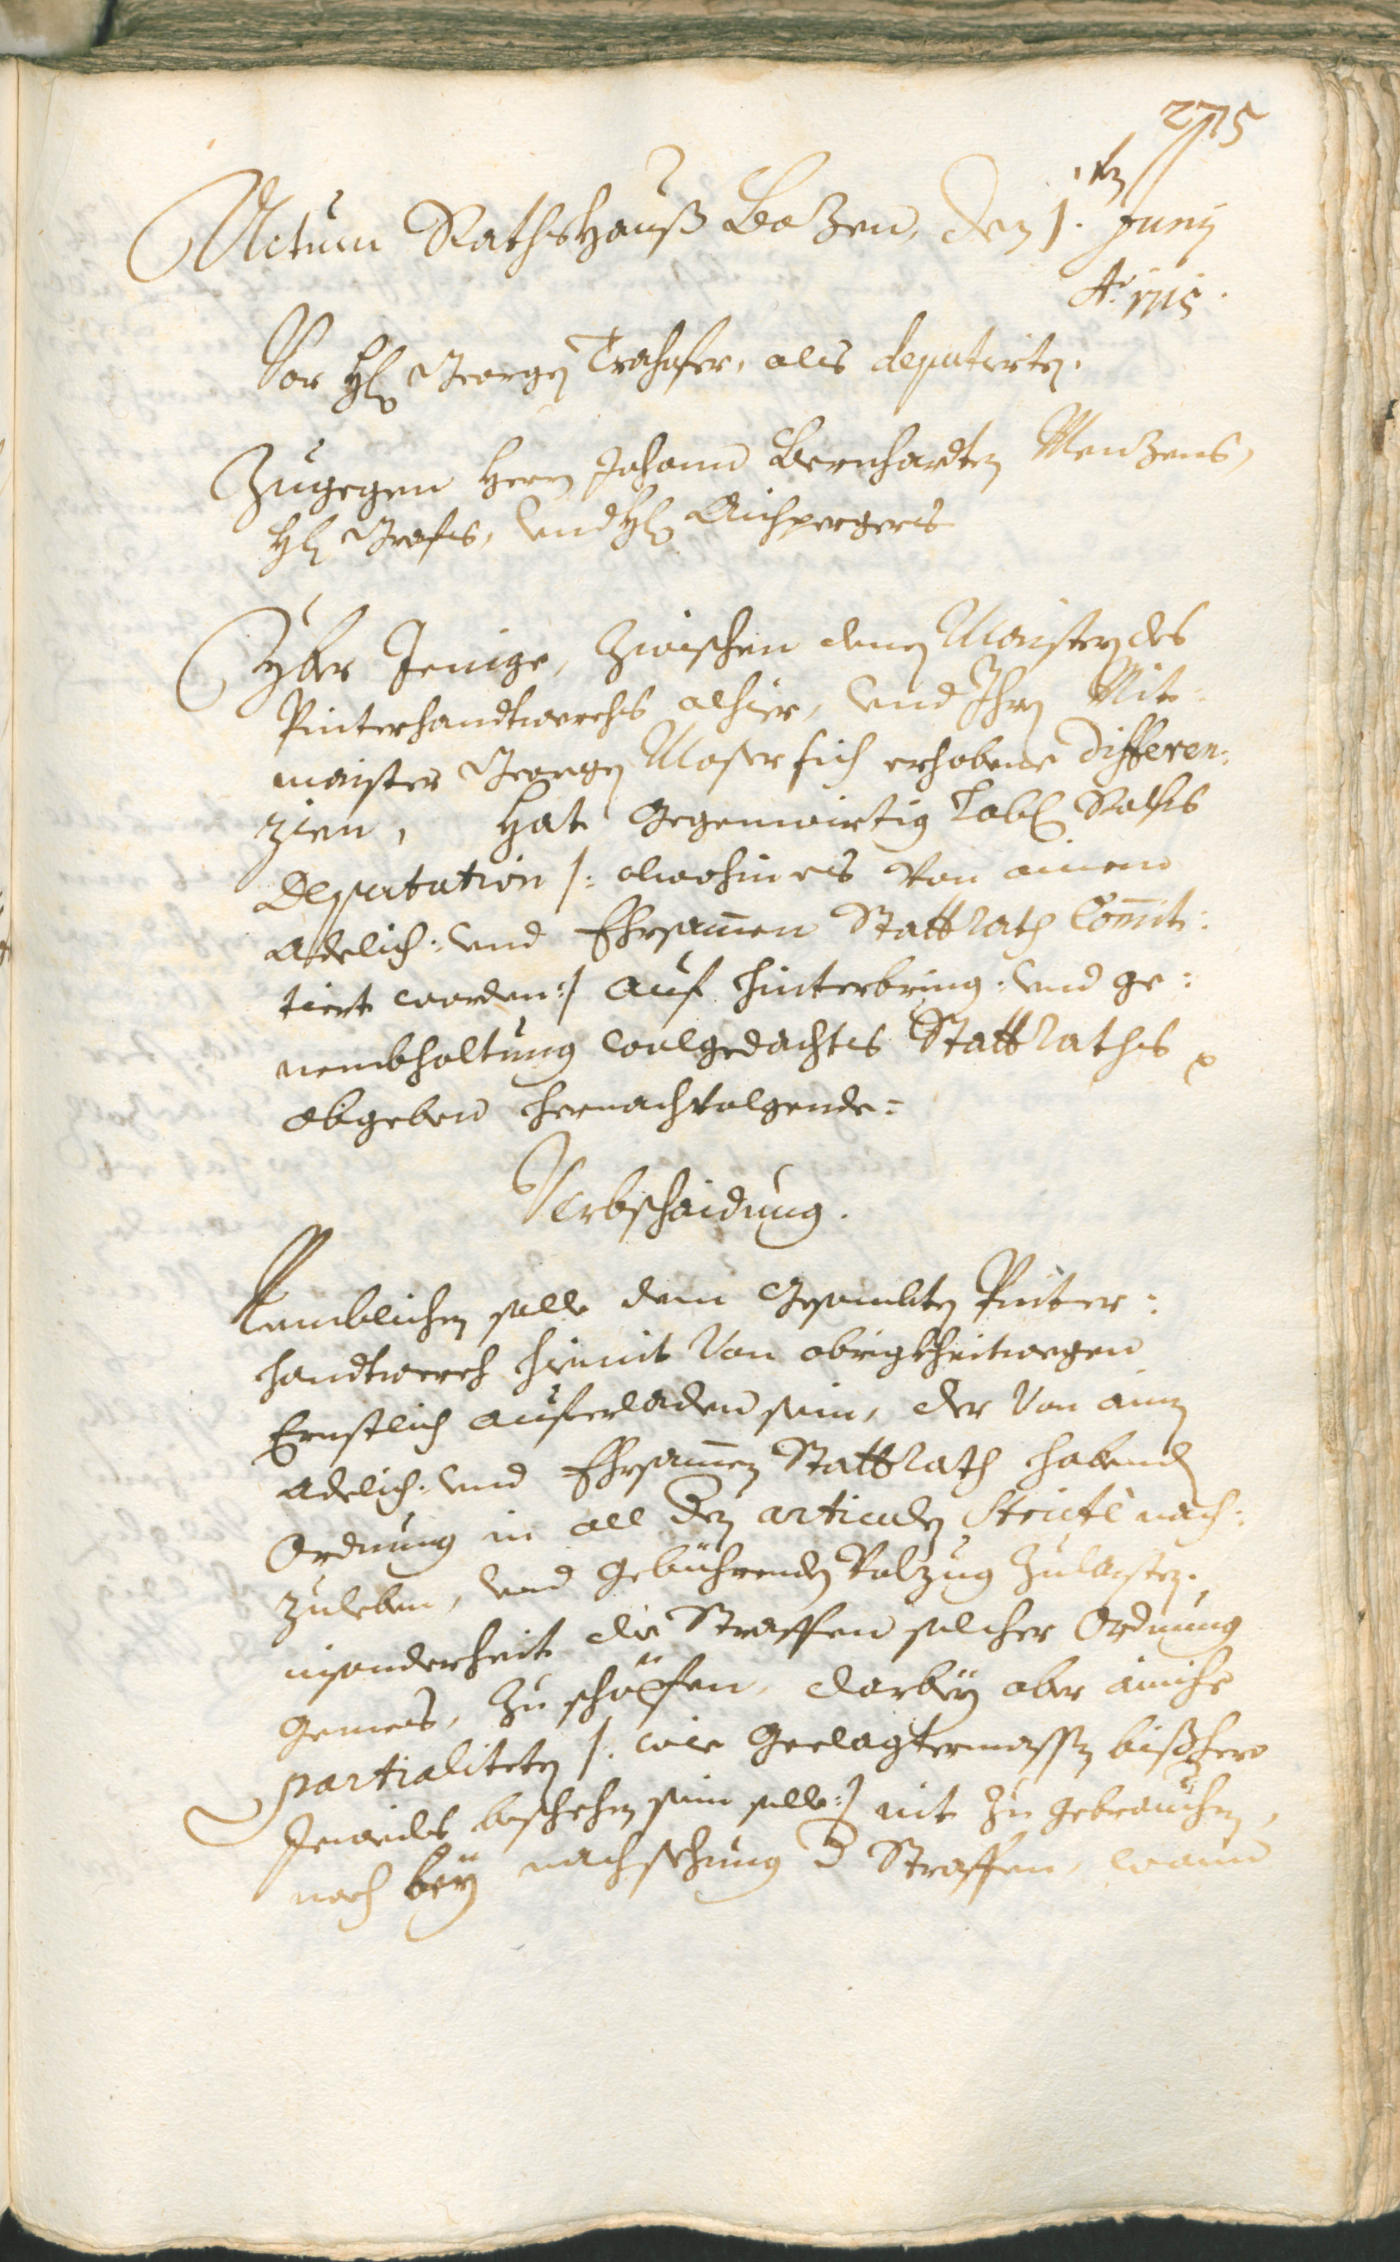 275
Actum Rathshauß Bozen, den 1.ten Junÿ
Ao. 1715.
Vor Hl. Georgen Trahofer, als deputirten.
Zugegen Herrn Johann Bernhardten Menzens,
Hl. Grafs, und Hl. Aichpergers
Yber Jenige, zwischen denen Maistern des
Pinterhandtwerchs alhier, und Ihren Mit-
maister Georgen Moser sich erhobene differen:
zien, hat gegenwirtig Lobl. Raths
Deputation /: alwohin es von ainem
Adelich: und Ehrsamen Stattrath Comit:
tiert worden :/ auf hinterbring: und ge:
nembhaltung wolgedachts Stattraths
abgeben hernachvolgende:
Verbschaidung.
Nemblichen solle dem gesambten Pinter:
handtwerch hiemit von obrigkheitwegen
Ernstlich auferladen sein, der von ainen
Adelich: und Ehrsamen Stattrath habenden
Ordnung in all den articulen strictè nach:
zuleben, und gebührenden Volzug zulaisten.
insonderheit die Straffen solcher Ordnung
gemeß, zu schöpfen, darbeÿ aber ainiche
partialiteten /: wie geclagtermassen bißhero
Jeweils beschehen sein solle :/ nit zu gebrauchen,
noch beÿ nachsehung d. Straffen, wann